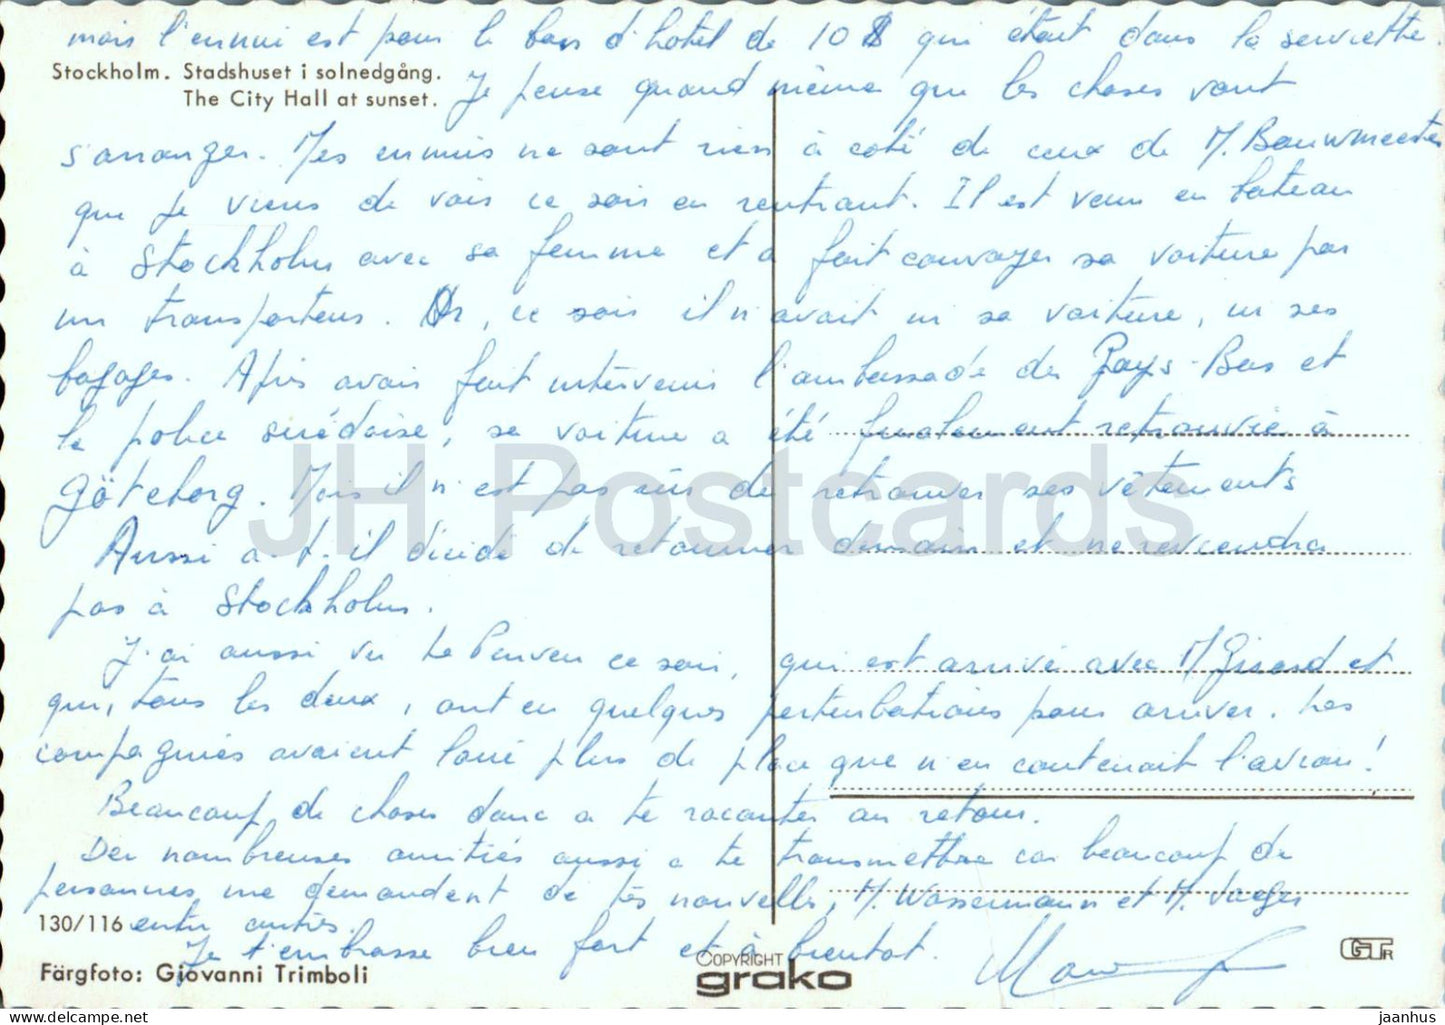 mais l'ennui est pour le bon d'hôtel de 10 $ qui était dans la serviette.
Stockholm. Stadshuset i solnedgång.
The City Hall at sunset.
Je pense quand même que les choses vont
s'arranger. Mes ennuis ne sont rien à côté de ceux de M. Bouwmeester
que je viens de voir ce soir en rentrant. Il est venu en bateau
à Stockholm avec sa femme et a fait convoyer sa voiture par
un transporteur. Or, ce soir il n'avait ni sa voiture, ni ses
bagages. Après avoir fait intervenir l'ambassade des Pays-Bas et
la police suédoise, sa voiture a été finalement retrouvée à
Göteborg. Mais il n'est pas sûr de retrouver ses vêtements
Aussi a-t-il décidé de retourner demain et ne reviendra
pas à Stockholm.
J'ai aussi vu Le Penven ce soir, qui est arrivé avec M. Girard et
qui, tous les deux, ont eu quelques perturbations pour arriver. Les
compagnies avaient loué plus de place que n'en contenait l'avion!
Beaucoup de choses donc à te raconter au retour.
Des nombreuses amitiés aussi à te transmettre car beaucoup de
personnes me demandent de tes nouvelles, M. Wassermann et M. Jaeger
entre autres.
Je t'embrasse bien fort et à bientôt.
130/116
Färgfoto: Giovanni Trimboli
COPYRIGHT
grako
GTR
JH Postcards
jaanhus@delcampe.net